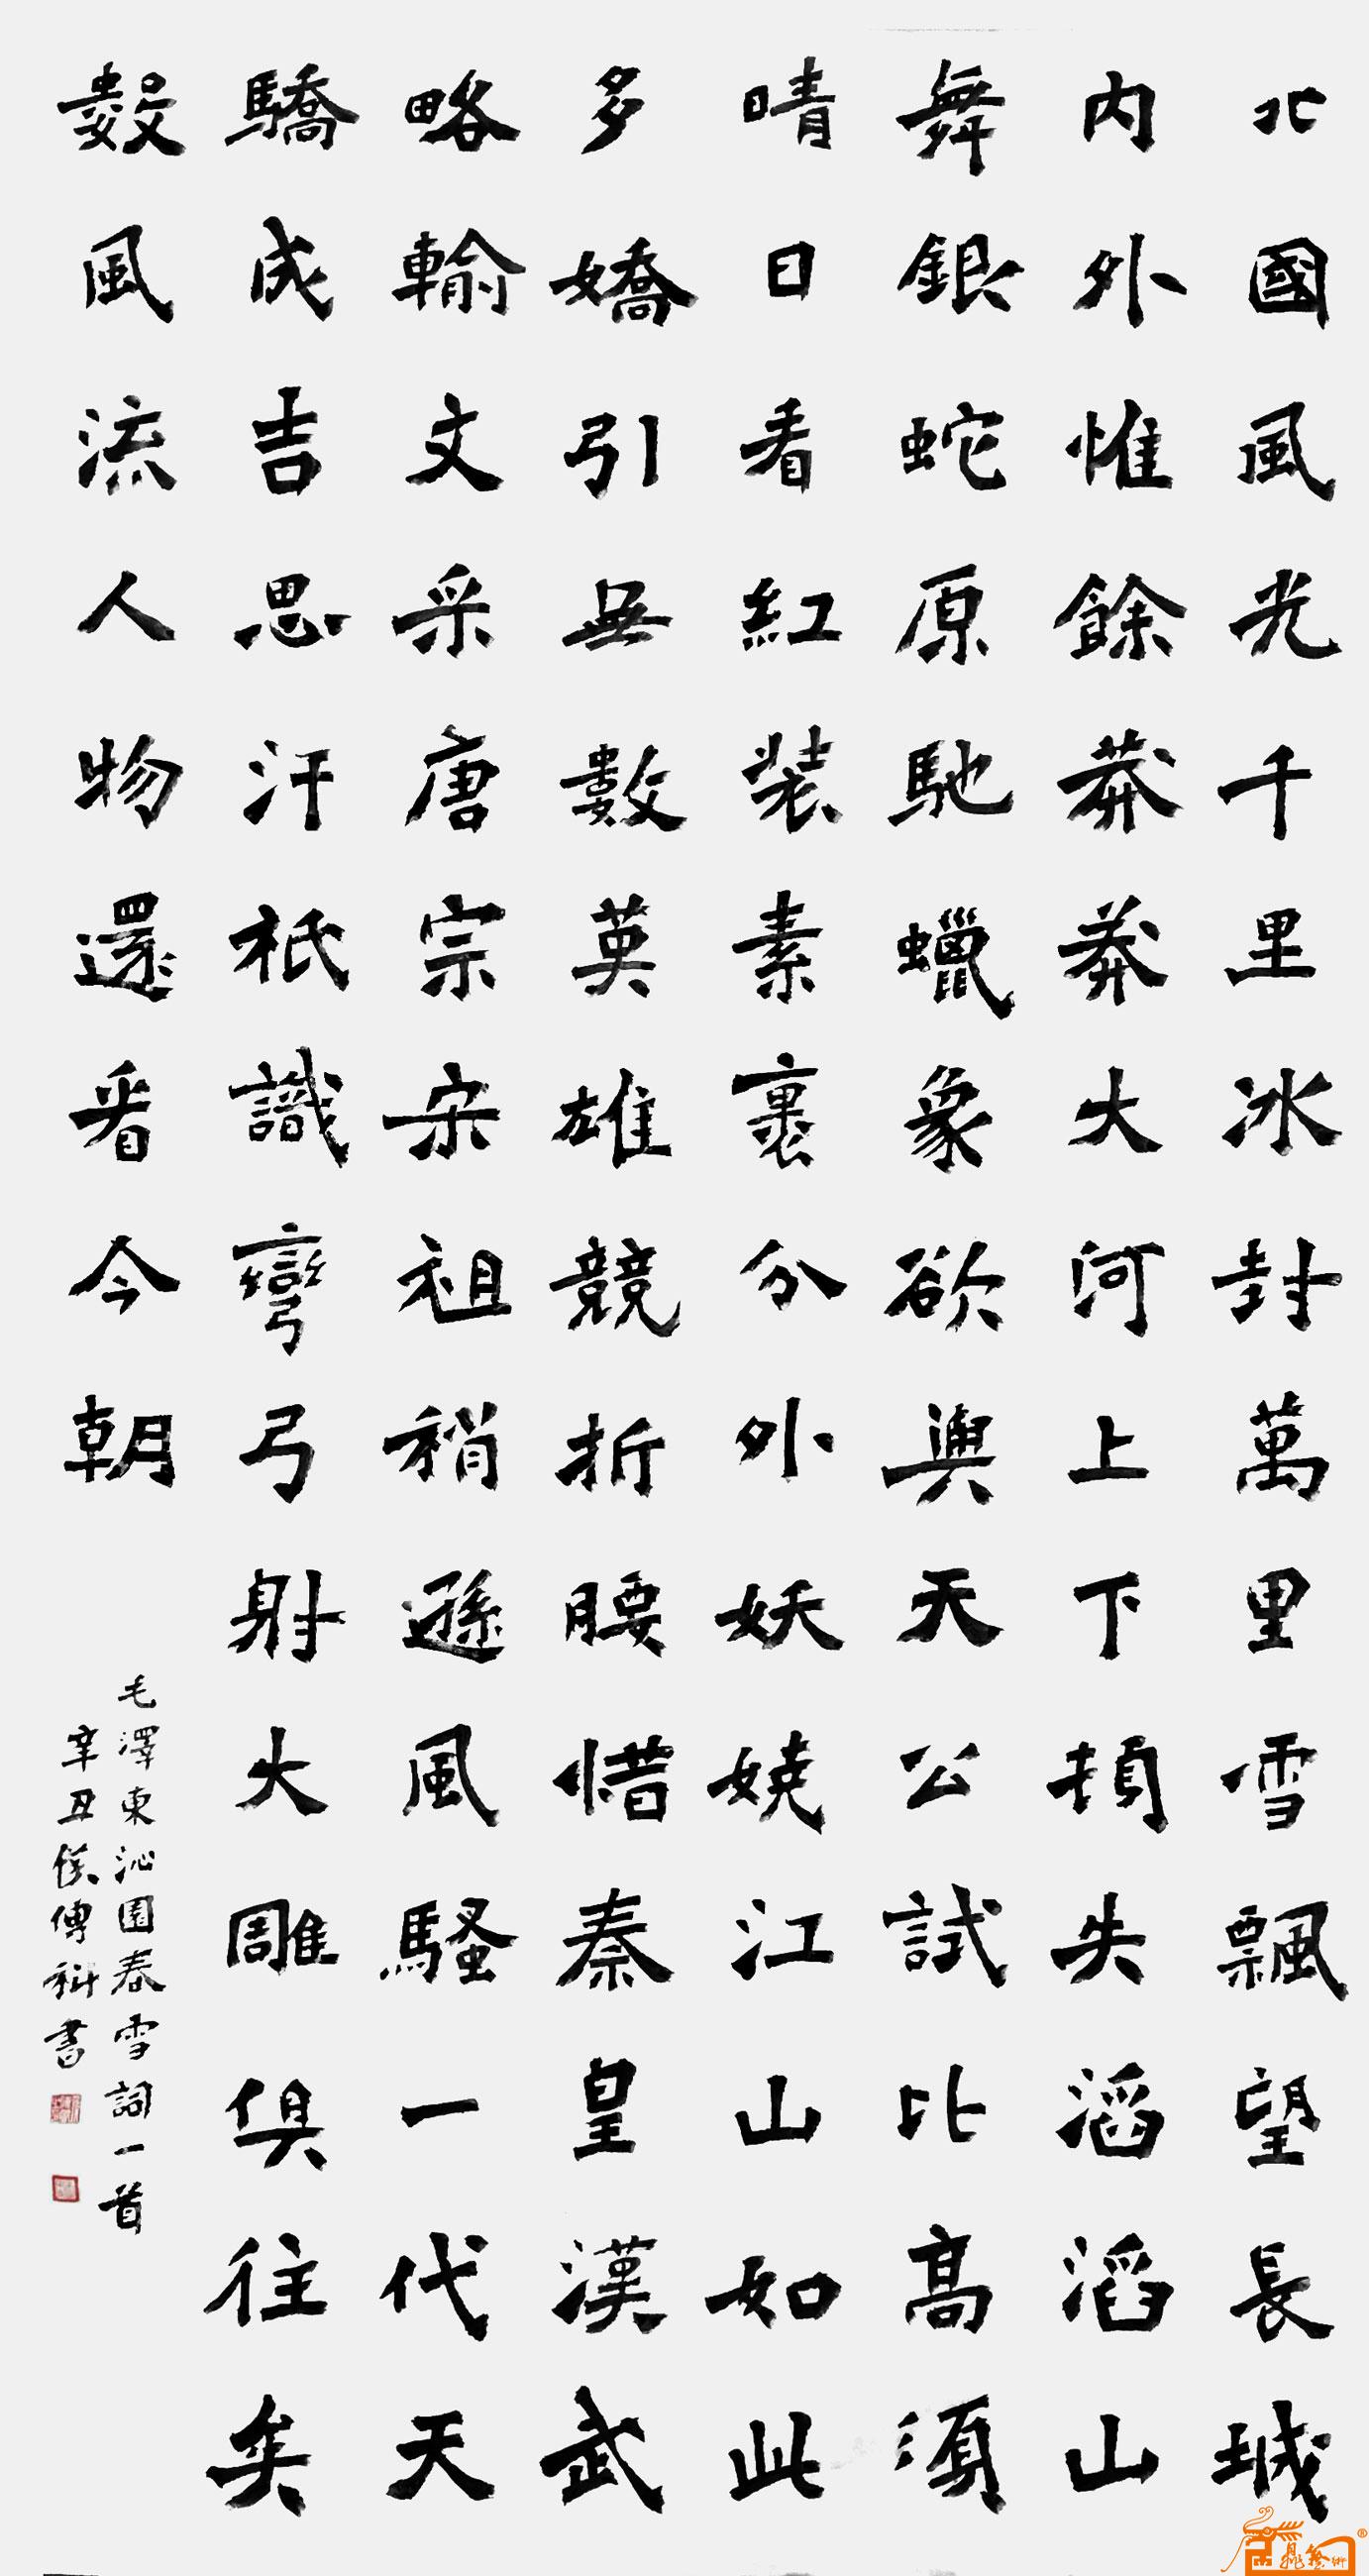 北國風光千里冰封萬里雪飄望長城
内外惟餘莽莽大河上下頓失滔滔山
舞銀蛇原馳蠟象欲與天公試比高須
晴日看紅装素裹分外妖嬈江山如此
多嬌引無數英雄競折腰惜秦皇漢武
略輸文采唐宗宋祖稍遜風騷一代天
驕成吉思汗衹識彎弓射大雕俱往矣
數風流人物還看今朝
毛澤東沁園春雪詞一首
辛丑侯傳科書